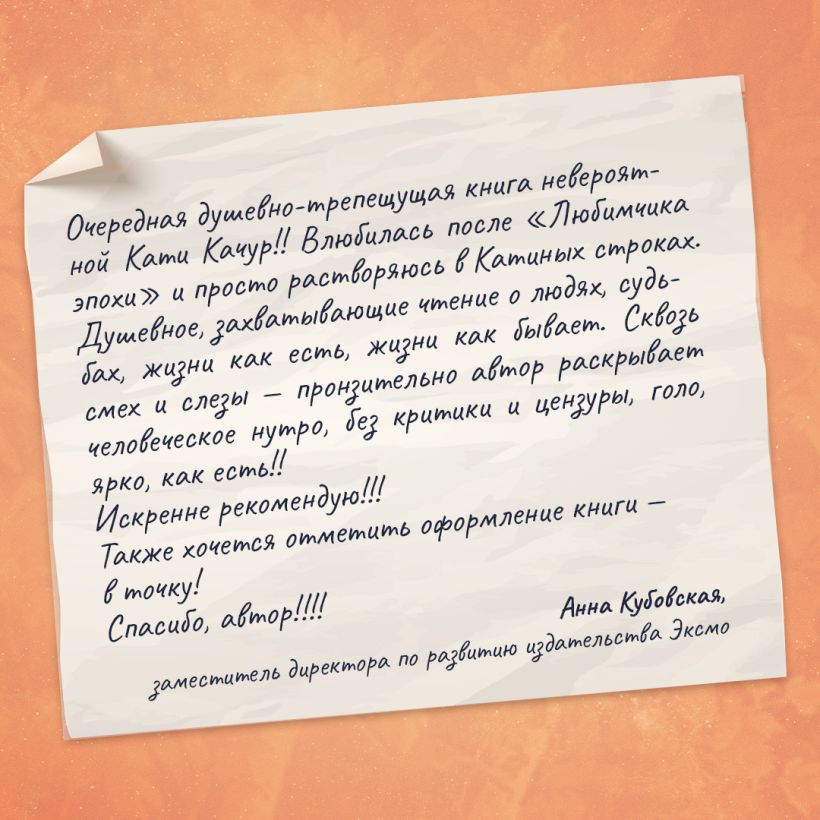 Очередная душевно-трепещущая книга невероят-
ной Кати Качур!! Влюбилась после «Любимчика
эпохи» и просто растворяюсь в Катиных строках.
Душевное, захватывающие чтение о людях, судь-
бах, жизни как есть, жизни как бывает. Сквозь
смех и слезы — пронзительно автор раскрывает
человеческое нутро, без критики и цензуры, голо,
ярко, как есть!!
Искренне рекомендую!!!
Также хочется отметить оформление книги —
в точку!
Спасибо, автор!!!!
Анна Кубовская,
заместитель директора по развитию издательства Эксмо